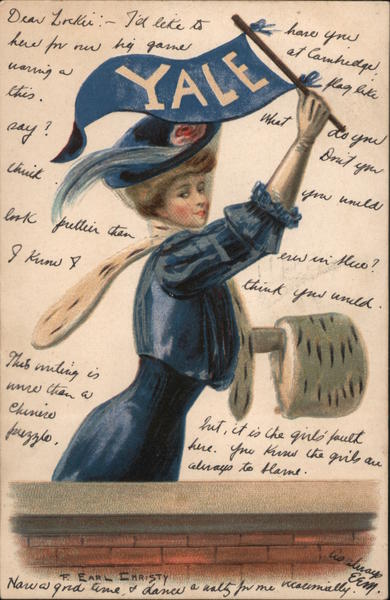 Dear Lockie:- I'd like to have you
here for our big game at Cambridge
waving a flag like
this. What do you
say? Don't you
think you would
look prettier than ever in blue?
I know I think you would.
YALE
This writing is
worse than a
Chinese
puzzle,
but, it is the girls' fault
here. You know the girls are
always to blame.
As always
E.E.M.
F. EARL CHRISTY
Have a good time, & dance a waltz for me occasionally.